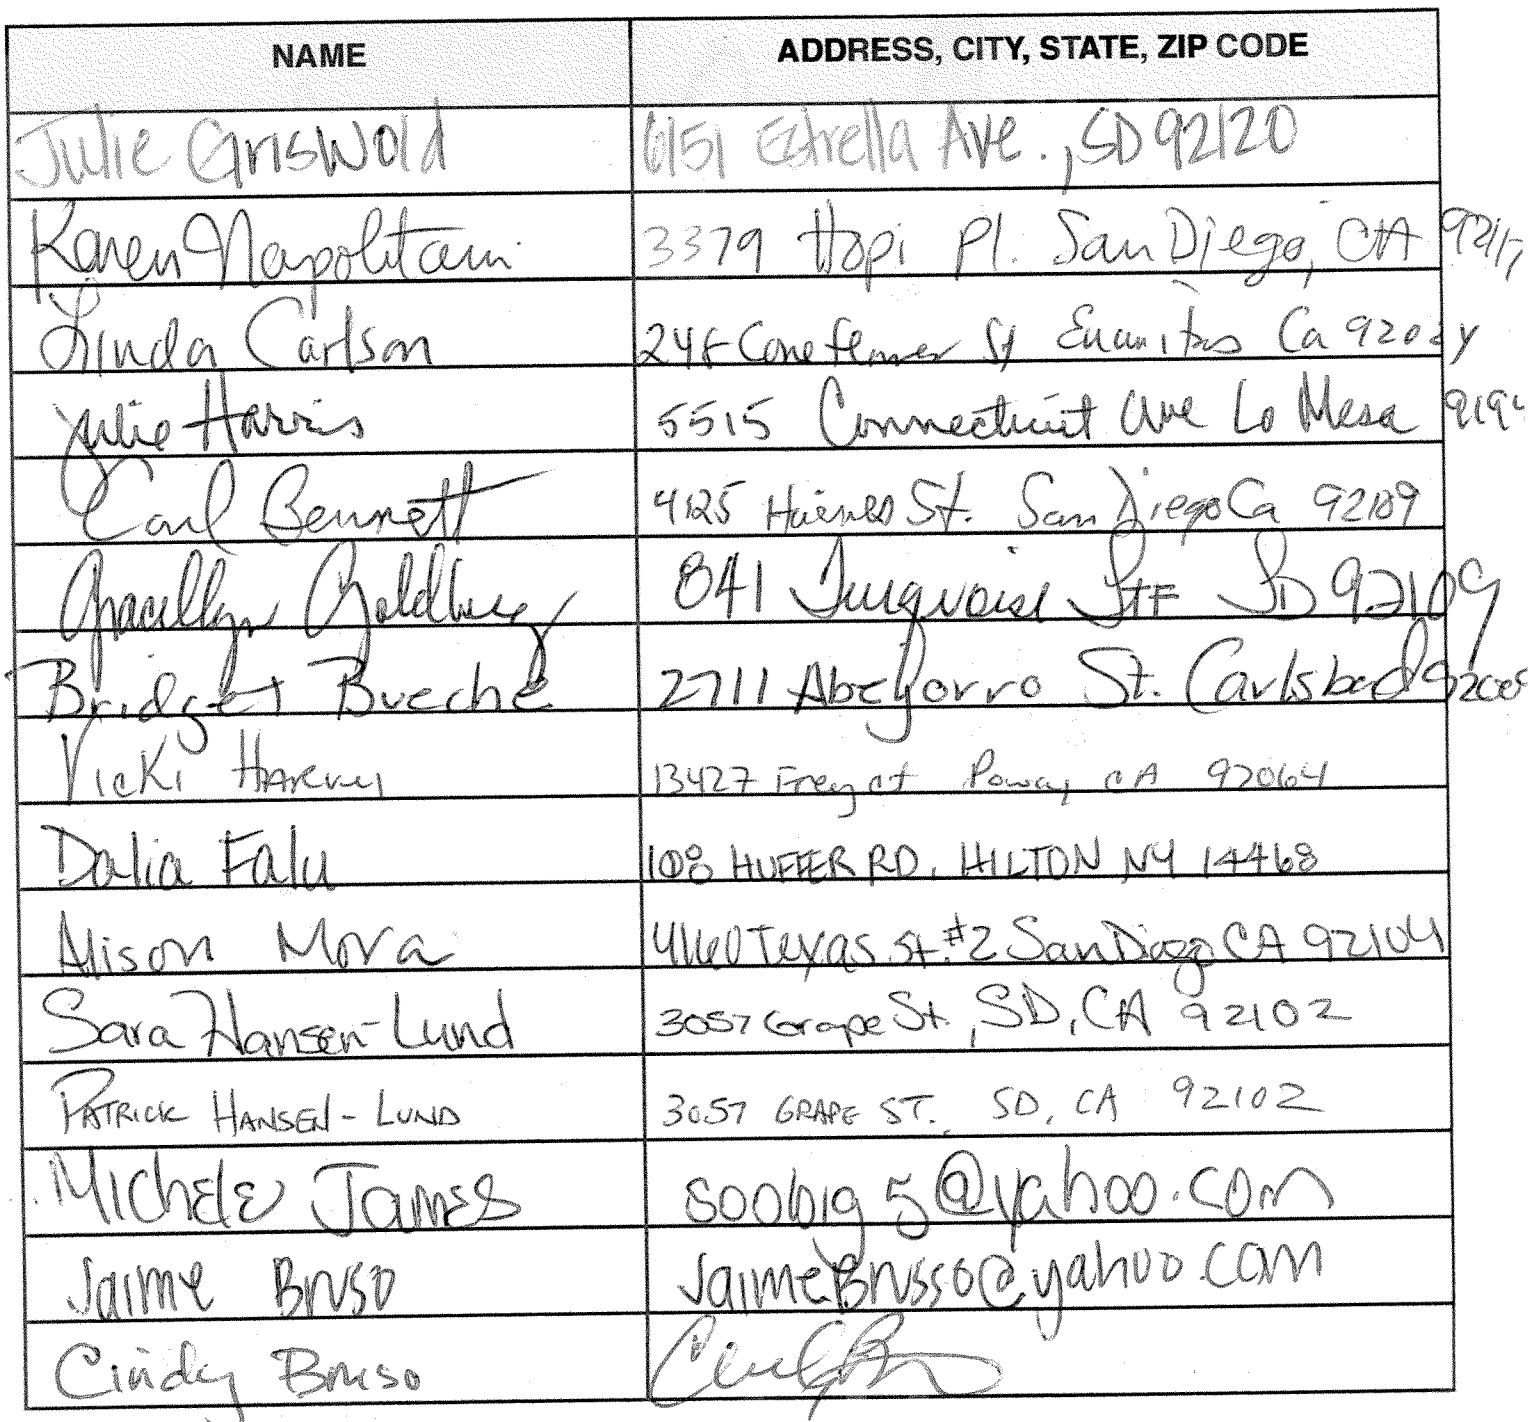 NAME ADDRESS, CITY, STATE, ZIP CODE
Julie Griswold 6151 Estrella Ave., SD 92120
Karen Napolitani 3379 Hopi Pl. San Diego, CA 92117
Linda Carlson St Ca 92024
Julie Harris 5515 Connecticut Ave La Mesa 9194
Carl Bennett 4125 Haines St. San Diego Ca 92109
Goldberg 841 Turquoise SD 92109
Bridget Bueche 2711 Abejorro St. Carlsbad 92009
Vicki Harvey 13427 Frey ct Poway CA 92064
Dalia Falu 108 HUFFER RD. HILTON NY 14468
Alison Mora 4160 Texas St. #2 San Diego CA 92104
Sara Hansen-Lund 3057 Grape St., SD, CA 92102
PATRICK HANSEN-LUND 3057 GRAPE ST., SD, CA 92102
Michele James soobig5@yahoo.com
Jaime Bruso JaimeBrusso@yahoo.com
Cindy Bruso